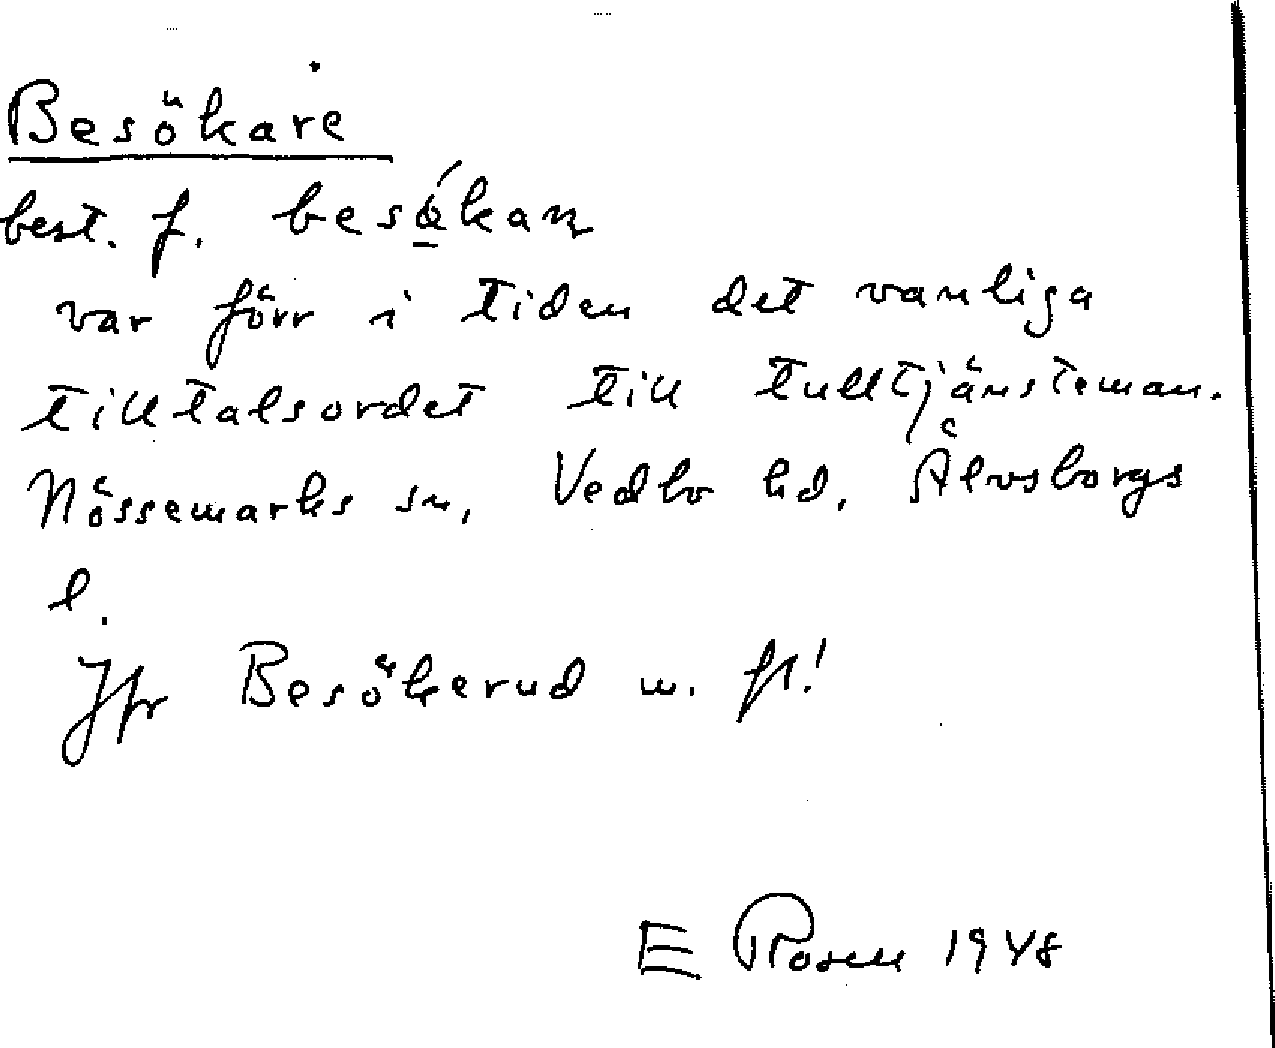 Besökare
best. f. besǿkan
var förr i tiden det vanliga
tilltalsordet till tulltjänsteman.
Nössemarks sn, Vedbo hd, Älvsborgs
l.
Jfr Besökerud m. fl.!
E Rosen 1948